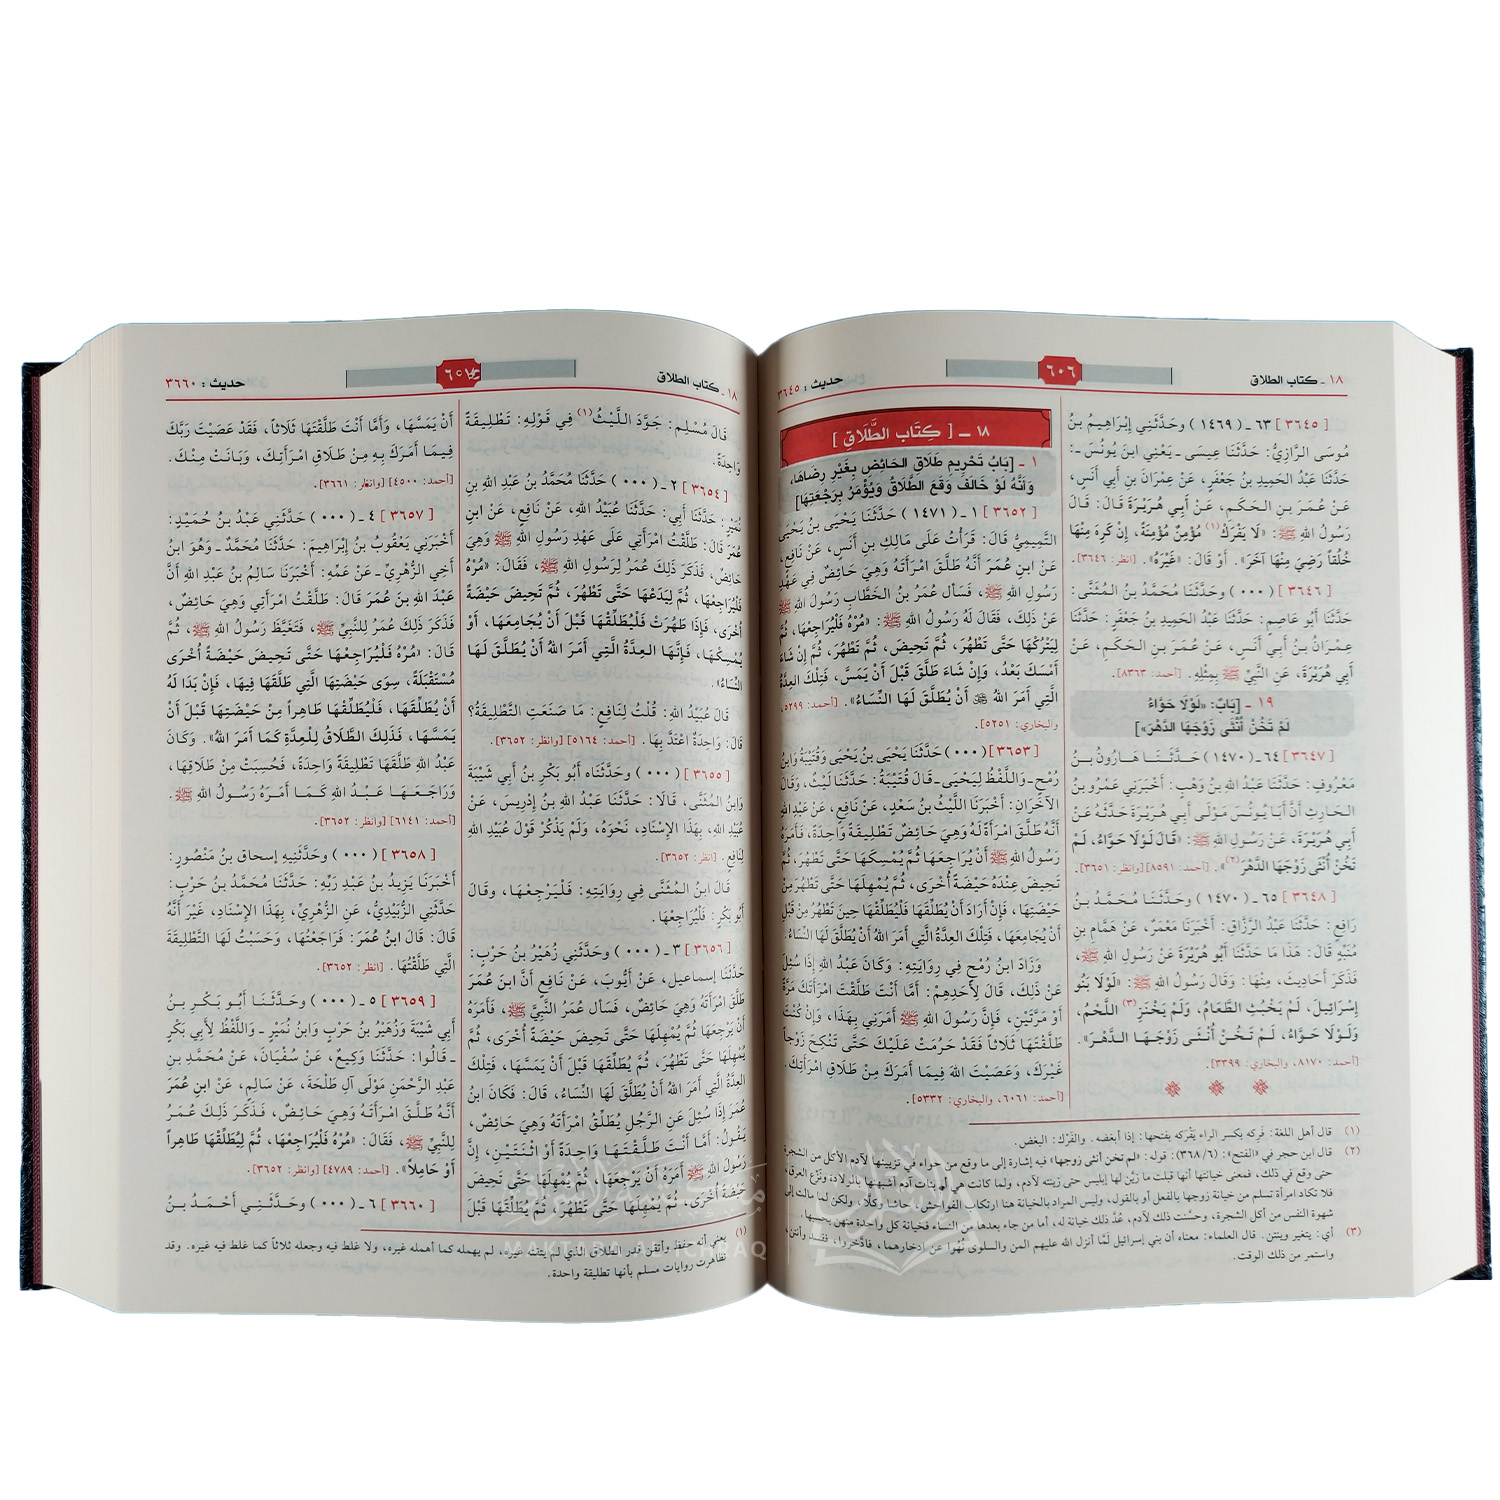 ١٨ ـ كتاب الطلاق
٦٠٦
حديث : ٣٦٤٥
[ ٣٦٤٥ ] ٦٣ ـ ( ١٤٦٩ ) وحَدَّثَنِي إِبْرَاهِيمُ بنُ
مُوسَى الرَّازِيُّ: حَدَّثَنَا عِيسَى ـ يَعْنِي ابنَ يُونُسَ ـ:
حَدَّثَنَا عَبْدُ الحَمِيدِ بنُ جَعْفَرٍ، عَنْ عِمْرَانَ بنِ أَبِي أَنَسٍ،
عَنْ عُمَرَ بنِ الحَكَمِ، عَنْ أَبِي هُرَيْرَةَ قَالَ: قَالَ
رَسُولُ اللهِ ﷺ: «لَا يَفْرَكْ(١) مُؤْمِنٌ مُؤْمِنَةً، إِنْ كَرِهَ مِنْهَا
خُلُقاً رَضِيَ مِنْهَا آخَرَ». أَوْ قَالَ: «غَيْرَهُ». [انظر: ٣٦٤٦]
[ ٣٦٤٦ ] ( ٠٠٠ ) وحَدَّثَنَا مُحَمَّدُ بنُ المُثَنَّى:
حَدَّثَنَا أَبُو عَاصِمٍ: حَدَّثَنَا عَبْدُ الحَمِيدِ بنُ جَعْفَرٍ: حَدَّثَنَا
عِمْرَانُ بنُ أَبِي أَنَسٍ، عَنْ عُمَرَ بنِ الحَكَمِ، عَنْ
أَبِي هُرَيْرَةَ، عَنِ النَّبِيِّ ﷺ بِمِثْلِهِ. [أحمد: ٨٣٦٣].
١٩ ـ [بَابُ: «لَوْلَا حَوَّاءُ
لَمْ تَخُنْ أُنْثَى زَوْجَهَا الدَّهْرَ»]
[ ٣٦٤٧ ] ٦٤ ـ ( ١٤٧٠ ) حَدَّثَنَا هَارُونُ بنُ
مَعْرُوفٍ: حَدَّثَنَا عَبْدُ اللهِ بنُ وَهْبٍ: أَخْبَرَنِي عَمْرُو بنُ
الحَارِثِ أَنَّ أَبَا يُونُسَ مَوْلَى أَبِي هُرَيْرَةَ حَدَّثَهُ عَنْ
أَبِي هُرَيْرَةَ، عَنْ رَسُولِ اللهِ ﷺ: «قَالَ لَوْلَا حَوَّاءُ، لَمْ
تَخُنْ أُنْثَى زَوْجَهَا الدَّهْرَ(٢)». [أحمد: ٨٥٩١] [وانظر: ٣٦٥١].
[ ٣٦٤٨ ] ٦٥ ـ ( ١٤٧٠ ) وحَدَّثَنَا مُحَمَّدُ بنُ
رَافِعٍ: حَدَّثَنَا عَبْدُ الرَّزَّاقِ: أَخْبَرَنَا مَعْمَرٌ، عَنْ هَمَّامِ بنِ
مُنَبِّهٍ قَالَ: هَذَا مَا حَدَّثَنَا أَبُو هُرَيْرَةَ عَنْ رَسُولِ اللهِ ﷺ،
فَذَكَرَ أَحَادِيثَ، مِنْهَا: وَقَالَ رَسُولُ اللهِ ﷺ: «لَوْلَا بَنُو
إِسْرَائِيلَ، لَمْ يَخْبُثِ الطَّعَامُ، وَلَمْ يَخْنَزِ(٣) اللَّحْمُ،
وَلَوْلَا حَوَّاءُ، لَمْ تَخُنْ أُنْثَى زَوْجَهَا الدَّهْرَ».
[أحمد: ٨١٧٠، والبخاري: ٣٣٩٩].
١٨ ـ [ كِتَاب الطَّلَاقِ ]
١ ـ [بَابُ تَحْرِيمِ طَلَاقِ الحَائِضِ بِغَيْرِ رِضَاهَا،
وَأَنَّهُ لَوْ خَالَفَ وَقَعَ الطَّلَاقُ وَيُؤْمَرُ بِرَجْعَتِهَا]
[ ٣٦٥٢ ] ١ ـ ( ١٤٧١ ) حَدَّثَنَا يَحْيَى بنُ يَحْيَى
التَّمِيمِيُّ قَالَ: قَرَأْتُ عَلَى مَالِكِ بنِ أَنَسٍ، عَنْ نَافِعٍ،
عَنْ ابنِ عُمَرَ أَنَّهُ طَلَّقَ امْرَأَتَهُ وَهِيَ حَائِضٌ فِي عَهْدِ
رَسُولِ اللهِ ﷺ، فَسَأَلَ عُمَرُ بنُ الخَطَّابِ رَسُولَ اللهِ ﷺ
عَنْ ذَلِكَ، فَقَالَ لَهُ رَسُولُ اللهِ ﷺ: «مُرْهُ فَلْيُرَاجِعْهَا، ثُمَّ
لِيَتْرُكْهَا حَتَّى تَطْهُرَ، ثُمَّ تَحِيضَ، ثُمَّ تَطْهُرَ، ثُمَّ إِنْ شَاءَ
أَمْسَكَ بَعْدُ، وَإِنْ شَاءَ طَلَّقَ قَبْلَ أَنْ يَمَسَّ، فَتِلْكَ العِدَّةُ
الَّتِي أَمَرَ اللهُ ﷻ أَنْ يُطَلَّقَ لَهَا النِّسَاءُ». [أحمد: ٥٢٩٩،
والبخاري: ٥٢٥١].
[ ٣٦٥٣ ] ( ٠٠٠ ) حَدَّثَنَا يَحْيَى بنُ يَحْيَى وَقُتَيْبَةُ وَابنُ
رُمْحٍ ـ وَاللَّفْظُ لِيَحْيَى ـ قَالَ قُتَيْبَةُ: حَدَّثَنَا لَيْثٌ، وَقَالَ
الآخَرَانِ: أَخْبَرَنَا اللَّيْثُ بنُ سَعْدٍ، عَنْ نَافِعٍ، عَنْ عَبْدِ اللهِ
أَنَّهُ طَلَّقَ امْرَأَةً لَهُ وَهِيَ حَائِضٌ تَطْلِيقَةً وَاحِدَةً، فَأَمَرَهُ
رَسُولُ اللهِ ﷺ أَنْ يُرَاجِعَهَا ثُمَّ يُمْسِكَهَا حَتَّى تَطْهُرَ، ثُمَّ
تَحِيضَ عِنْدَهُ حَيْضَةً أُخْرَى، ثُمَّ يُمْهِلَهَا حَتَّى تَطْهُرَ مِنْ
حَيْضَتِهَا، فَإِنْ أَرَادَ أَنْ يُطَلِّقَهَا فَلْيُطَلِّقْهَا حِينَ تَطْهُرُ مِنْ قَبْلِ
أَنْ يُجَامِعَهَا، فَتِلْكَ العِدَّةُ الَّتِي أَمَرَ اللهُ أَنْ يُطَلَّقَ لَهَا النِّسَاءُ.
وَزَادَ ابنُ رُمْحٍ فِي رِوَايَتِهِ: وَكَانَ عَبْدُ اللهِ إِذَا سُئِلَ
عَنْ ذَلِكَ، قَالَ لِأَحَدِهِمْ: أَمَّا أَنْتَ طَلَّقْتَ امْرَأَتَكَ مَرَّةً
أَوْ مَرَّتَيْنِ، فَإِنَّ رَسُولَ اللهِ ﷺ أَمَرَنِي بِهَذَا، وَإِنْ كُنْتَ
طَلَّقْتَهَا ثَلَاثاً فَقَدْ حَرُمَتْ عَلَيْكَ حَتَّى تَنْكِحَ زَوْجاً
غَيْرَكَ، وَعَصَيْتَ اللهَ فِيمَا أَمَرَكَ مِنْ طَلَاقِ امْرَأَتِكَ.
[أحمد: ٦٠٦١، والبخاري: ٥٣٣٢].
(١) قال أهل اللغة: فَرِكه بكسر الراء يَفْرَكه بفتحها: إذا أبغضه. والفَرْك: البغض.
(٢) قال ابن حجر في «الفتح»: (٦/ ٣٦٨): قوله: «لم تخن أنثى زوجها» فيه إشارة إلى ما وقع من حواء في تزيينها لآدم الأكل من الشجرة
حتى وقع في ذلك، فمعنى خيانتها أنها قبلت ما زيّن لها إبليس حتى زينته لآدم، ولما كانت هي أم بنات آدم أشبهنها بالولادة ونزع العرق،
فلا تكاد امرأة تسلم من خيانة زوجها بالفعل أو بالقول، وليس المراد بالخيانة هنا ارتكاب الفواحش، حاشا وكلَّا، ولكن لما مالت إلى
شهوة النفس من أكل الشجرة، وحسَّنت ذلك لآدم، عُدَّ ذلك خيانة له، أما من جاء بعدها من النساء فخيانة كل واحدة منهن بحسبها.
(٣) أي: يتغير وينتن. قال العلماء: معناه أن بني إسرائيل لَمَّا أنزل الله عليهم المن والسلوى نُهُوا عن ادخارهما، فادَّخروا، ففسد وأنتن،
واستمر من ذلك الوقت.
١٨ ـ كتاب الطلاق
٦٠٧
حديث : ٣٦٦٠
قَالَ مُسْلِم: جَوَّدَ اللَّيْثُ(١) فِي قَوْلِهِ: تَطْلِيقَةً
وَاحِدَةً.
[ ٣٦٥٤ ] ٢ ـ ( ٠٠٠ ) حَدَّثَنَا مُحَمَّدُ بنُ عَبْدِ اللهِ بنِ
نُمَيْرٍ: حَدَّثَنَا أَبِي: حَدَّثَنَا عُبَيْدُ اللهِ، عَنْ نَافِعٍ، عَنْ ابنِ
عُمَرَ قَالَ: طَلَّقْتُ امْرَأَتِي عَلَى عَهْدِ رَسُولِ اللهِ ﷺ وَهِيَ
حَائِضٌ، فَذَكَرَ ذَلِكَ عُمَرُ لِرَسُولِ اللهِ ﷺ، فَقَالَ: «مُرْهُ
فَلْيُرَاجِعْهَا، ثُمَّ لِيَدَعْهَا حَتَّى تَطْهُرَ، ثُمَّ تَحِيضَ حَيْضَةً
أُخْرَى، فَإِذَا طَهُرَتْ فَلْيُطَلِّقْهَا قَبْلَ أَنْ يُجَامِعَهَا، أَوْ
يُمْسِكْهَا، فَإِنَّهَا العِدَّةُ الَّتِي أَمَرَ اللهُ أَنْ يُطَلَّقَ لَهَا
النِّسَاءُ».
قَالَ عُبَيْدُ اللهِ: قُلْتُ لِنَافِعٍ: مَا صَنَعَتِ التَّطْلِيقَةُ؟
قَالَ: وَاحِدَةٌ اعْتَدَّ بِهَا. [أحمد: ٥١٦٤] [وانظر: ٣٦٥٢].
[ ٣٦٥٥ ] ( ٠٠٠ ) وحَدَّثَنَاه أَبُو بَكْرِ بنُ أَبِي شَيْبَةَ
وَابنُ المُثَنَّى، قَالَا: حَدَّثَنَا عَبْدُ اللهِ بنُ إِدْرِيسَ، عَنْ
عُبَيْدِ اللهِ، بِهَذَا الإِسْنَادِ، نَحْوَهُ، وَلَمْ يَذْكُرْ قَوْلَ عُبَيْدِ اللهِ
لِنَافِعٍ. [انظر: ٣٦٥٢].
قَالَ ابنُ المُثَنَّى فِي رِوَايَتِهِ: فَلْيَرْجِعْهَا، وقَالَ
أَبُو بَكْرٍ: فَلْيُرَاجِعْهَا.
[ ٣٦٥٦ ] ٣ ـ ( ٠٠٠ ) وحَدَّثَنِي زُهَيْرُ بنُ حَرْبٍ:
حَدَّثَنَا إِسماعيل، عَنْ أَيُّوبَ، عَنْ نَافِعٍ أَنَّ ابنَ عُمَرَ
طَلَّقَ امْرَأَتَهُ وَهِيَ حَائِضٌ، فَسَأَلَ عُمَرُ النَّبِيَّ ﷺ، فَأَمَرَهُ
أَنْ يَرْجِعَهَا ثُمَّ يُمْهِلَهَا حَتَّى تَحِيضَ حَيْضَةً أُخْرَى، ثُمَّ
يُمْهِلَهَا حَتَّى تَطْهُرَ، ثُمَّ يُطَلِّقَهَا قَبْلَ أَنْ يَمَسَّهَا، فَتِلْكَ
العِدَّةُ الَّتِي أَمَرَ اللهُ أَنْ يُطَلَّقَ لَهَا النِّسَاءُ، قَالَ: فَكَانَ ابنُ
عُمَرَ إِذَا سُئِلَ عَنِ الرَّجُلِ يُطَلِّقُ امْرَأَتَهُ وَهِيَ حَائِضٌ،
يَقُولُ: أَمَّا أَنْتَ طَلَّقْتَهَا وَاحِدَةً أَوْ اثْنَتَيْنِ، إِنَّ
رَسُولَ اللهِ ﷺ أَمَرَهُ أَنْ يَرْجِعَهَا، ثُمَّ يُمْهِلَهَا حَتَّى تَحِيضَ
حَيْضَةً أُخْرَى، ثُمَّ يُمْهِلَهَا حَتَّى تَطْهُرَ، ثُمَّ يُطَلِّقَهَا قَبْلَ
أَنْ يَمَسَّهَا، وَأَمَّا أَنْتَ طَلَّقْتَهَا ثَلَاثاً، فَقَدْ عَصَيْتَ رَبَّكَ
فِيمَا أَمَرَكَ بِهِ مِنْ طَلَاقِ امْرَأَتِكَ، وَبَانَتْ مِنْكَ.
[أحمد: ٤٥٠٠] [وانظر: ٣٦٦١].
[ ٣٦٥٧ ] ٤ ـ ( ٠٠٠ ) حَدَّثَنِي عَبْدُ بنُ حُمَيْدٍ:
أَخْبَرَنِي يَعْقُوبُ بنُ إِبْرَاهِيمَ: حَدَّثَنَا مُحَمَّدٌ ـ وَهُوَ ابنُ
أَخِي الزُّهْرِيِّ ـ عَنْ عَمِّهِ: أَخْبَرَنَا سَالِمُ بنُ عَبْدِ اللهِ أَنَّ
عَبْدَ اللهِ بنَ عُمَرَ قَالَ: طَلَّقْتُ امْرَأَتِي وَهِيَ حَائِضٌ،
فَذَكَرَ ذَلِكَ عُمَرُ لِلنَّبِيِّ ﷺ، فَتَغَيَّظَ رَسُولُ اللهِ ﷺ، ثُمَّ
قَالَ: «مُرْهُ فَلْيُرَاجِعْهَا حَتَّى تَحِيضَ حَيْضَةً أُخْرَى
مُسْتَقْبَلَةً، سِوَى حَيْضَتِهَا الَّتِي طَلَّقَهَا فِيهَا، فَإِنْ بَدَا لَهُ
أَنْ يُطَلِّقَهَا، فَلْيُطَلِّقْهَا طَاهِراً مِنْ حَيْضَتِهَا قَبْلَ أَنْ
يَمَسَّهَا، فَذَلِكَ الطَّلَاقُ لِلْعِدَّةِ كَمَا أَمَرَ اللهُ». وَكَانَ
عَبْدُ اللهِ طَلَّقَهَا تَطْلِيقَةً وَاحِدَةً، فَحُسِبَتْ مِنْ طَلَاقِهَا،
وَرَاجَعَهَا عَبْدُ اللهِ كَمَا أَمَرَهُ رَسُولُ اللهِ ﷺ.
[أحمد: ٦١٤١] [وانظر: ٣٦٥٢].
[ ٣٦٥٨ ] ( ٠٠٠ ) وحَدَّثَنِيهِ إسحاق بنُ مَنْصُورٍ:
أَخْبَرَنَا يَزِيدُ بنُ عَبْدِ رَبِّهِ: حَدَّثَنَا مُحَمَّدُ بنُ حَرْبٍ:
حَدَّثَنِي الزُّبَيْدِيُّ، عَنِ الزُّهْرِيِّ، بِهَذَا الإِسْنَادِ، غَيْرَ أَنَّهُ
قَالَ: قَالَ ابنُ عُمَرَ: فَرَاجَعْتُهَا، وَحَسَبْتُ لَهَا التَّطْلِيقَةَ
الَّتِي طَلَّقْتُهَا. [انظر: ٣٦٥٢].
[ ٣٦٥٩ ] ٥ ـ ( ٠٠٠ ) وحَدَّثَنَا أَبُو بَكْرِ بنُ
أَبِي شَيْبَةَ وَزُهَيْرُ بنُ حَرْبٍ وَابنُ نُمَيْرٍ ـ وَاللَّفْظُ لِأَبِي بَكْرٍ
ـ قَالُوا: حَدَّثَنَا وَكِيعٌ، عَنْ سُفْيَانَ، عَنْ مُحَمَّدِ بنِ
عَبْدِ الرَّحْمَنِ مَوْلَى آلِ طَلْحَةَ، عَنْ سَالِمٍ، عَنْ ابنِ عُمَرَ
أَنَّهُ طَلَّقَ امْرَأَتَهُ وَهِيَ حَائِضٌ، فَذَكَرَ ذَلِكَ عُمَرُ
لِلنَّبِيِّ ﷺ، فَقَالَ: «مُرْهُ فَلْيُرَاجِعْهَا، ثُمَّ لِيُطَلِّقْهَا طَاهِراً
أَوْ حَامِلاً». [أحمد: ٤٧٨٩] [وانظر: ٣٦٥٢].
[ ٣٦٦٠ ] ٦ ـ ( ٠٠٠ ) وحَدَّثَنِي أَحْمَدُ بنُ
(١) يعني أنه حفظ وأتقن قدر الطلاق الذي لم يتقنه غيره، لم يهمله كما أهمله غيره، ولا غلط فيه وجعله ثلاثاً كما غلط فيه غيره. وقد
تظاهرت روايات مسلم بأنها تطليقة واحدة.
MAKTABA AL ICHRAQ